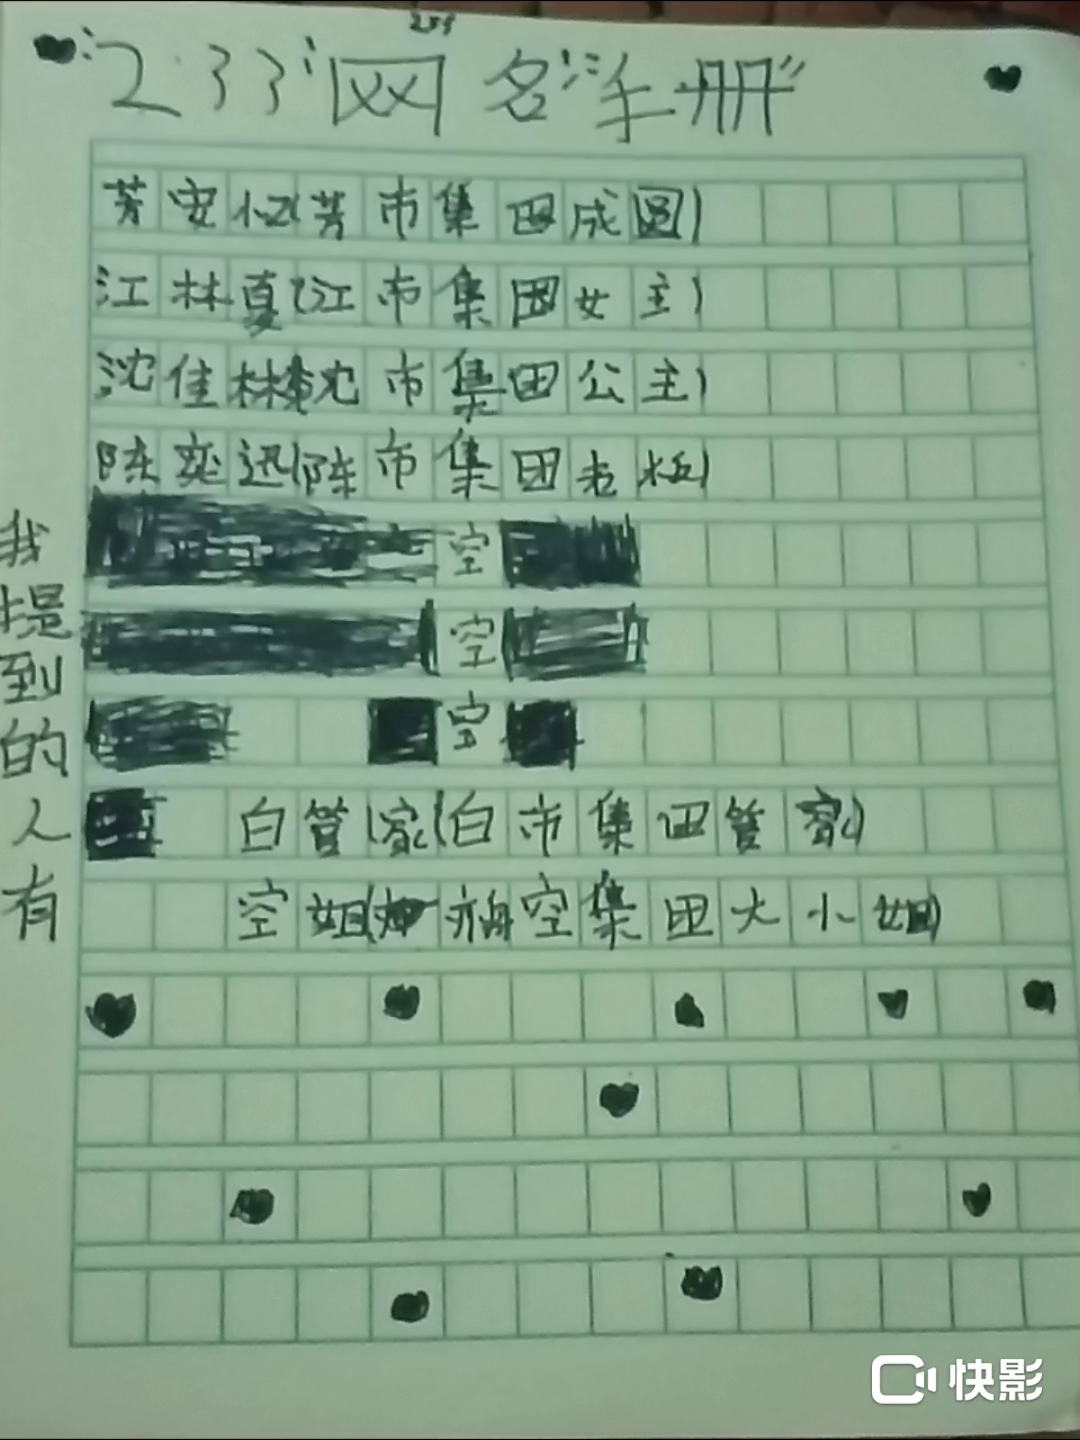 233
"233"网名"手册"
芳安似(芳市集团成圆)
江林夏(江市集团女主)
沈佳林(沈市集团公主)
陈奕迅(陈市集团老板)
空
空
空
白管家(白市集团管家)
空姐(航空集团大小姐)
我提到的人有
快影